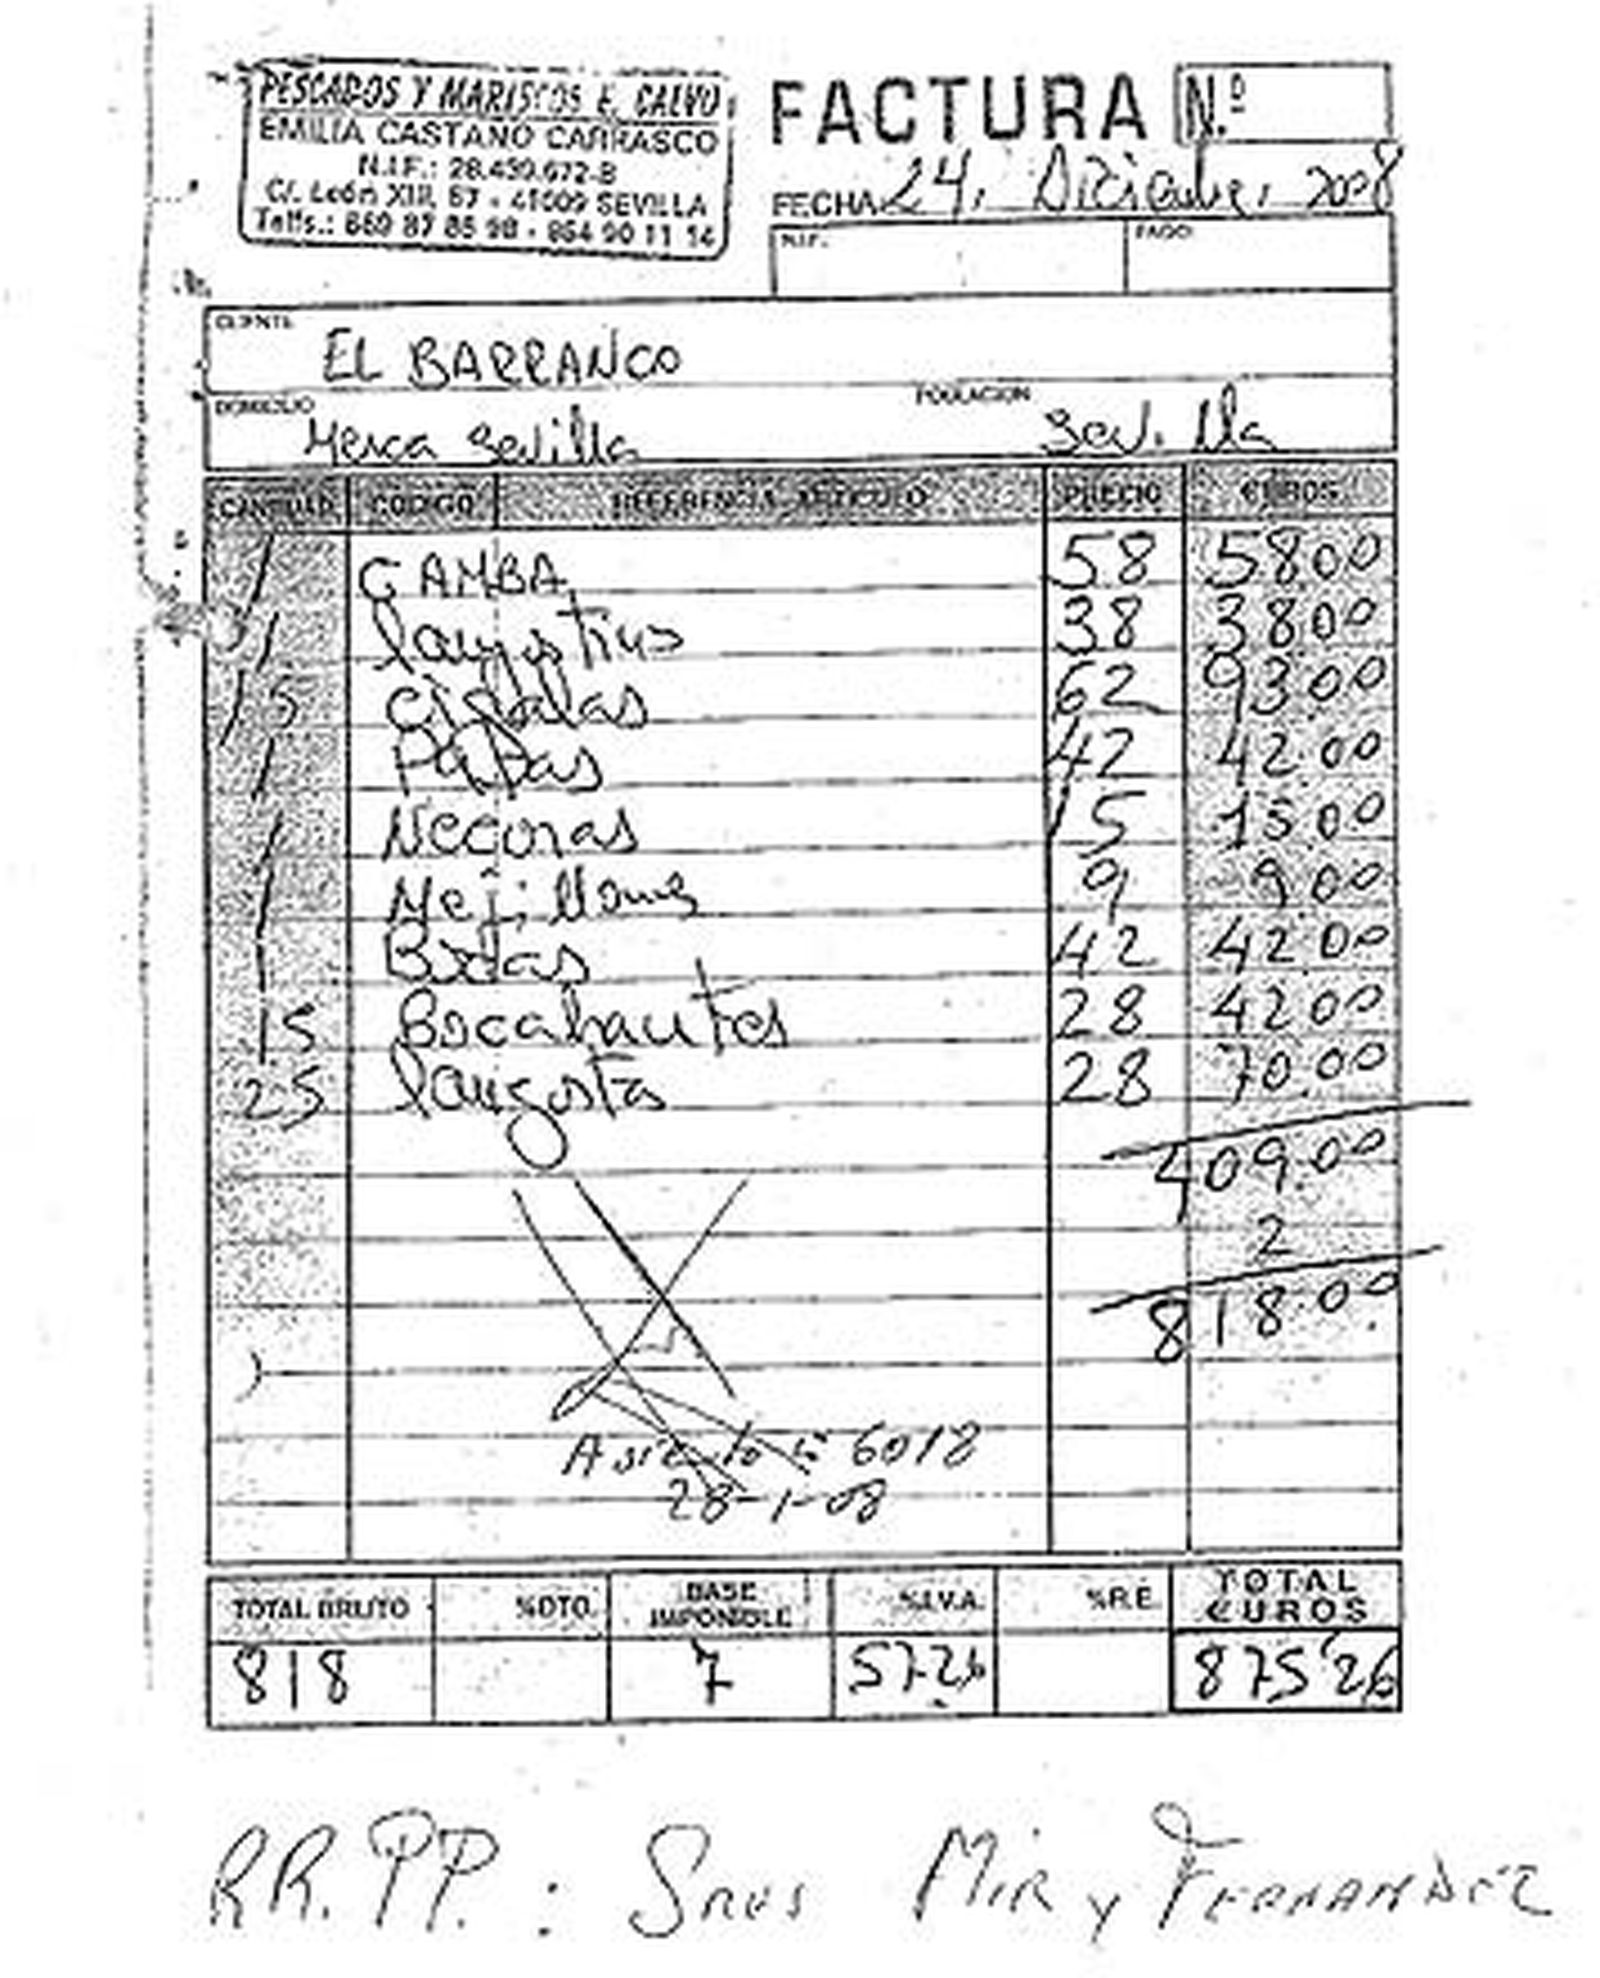 PESCADOS Y MARISCOS E. CALVO
EMILIA CASTAÑO CARRASCO
N.I.F.: 28.439.672-B
C/. León XIII, 57 - 41009 SEVILLA
Telfs.: 659 87 85 98 - 954 90 11 14
FACTURA N.º
FECHA 24, Diciembre, 2008
N.I.F. PAGO
CLIENTE
EL BARRANCO
DOMICILIO POBLACION
Merca Sevilla Sevilla
CANTIDAD CODIGO REFERENCIA ARTICULO PRECIO EUROS
1 GAMBA 58 5800
1 langostinos 38 3800
15 cigalas 62 9300
1 Patas 42 42.00
1 Necoras 15 1500
1 Mejillones 9 900
1 Bocas 42 4200
15 28 4200
25 langosta 28 70.00
409.00
2
818.00
Asiento 6018
28-1-08
TOTAL BRUTO %DTO. BASE IMPONIBLE %I.V.A. %R.E. TOTAL EUROS
818 7 57-26 875'26
RR.PP.: Sres MIR y FERNANDEZ